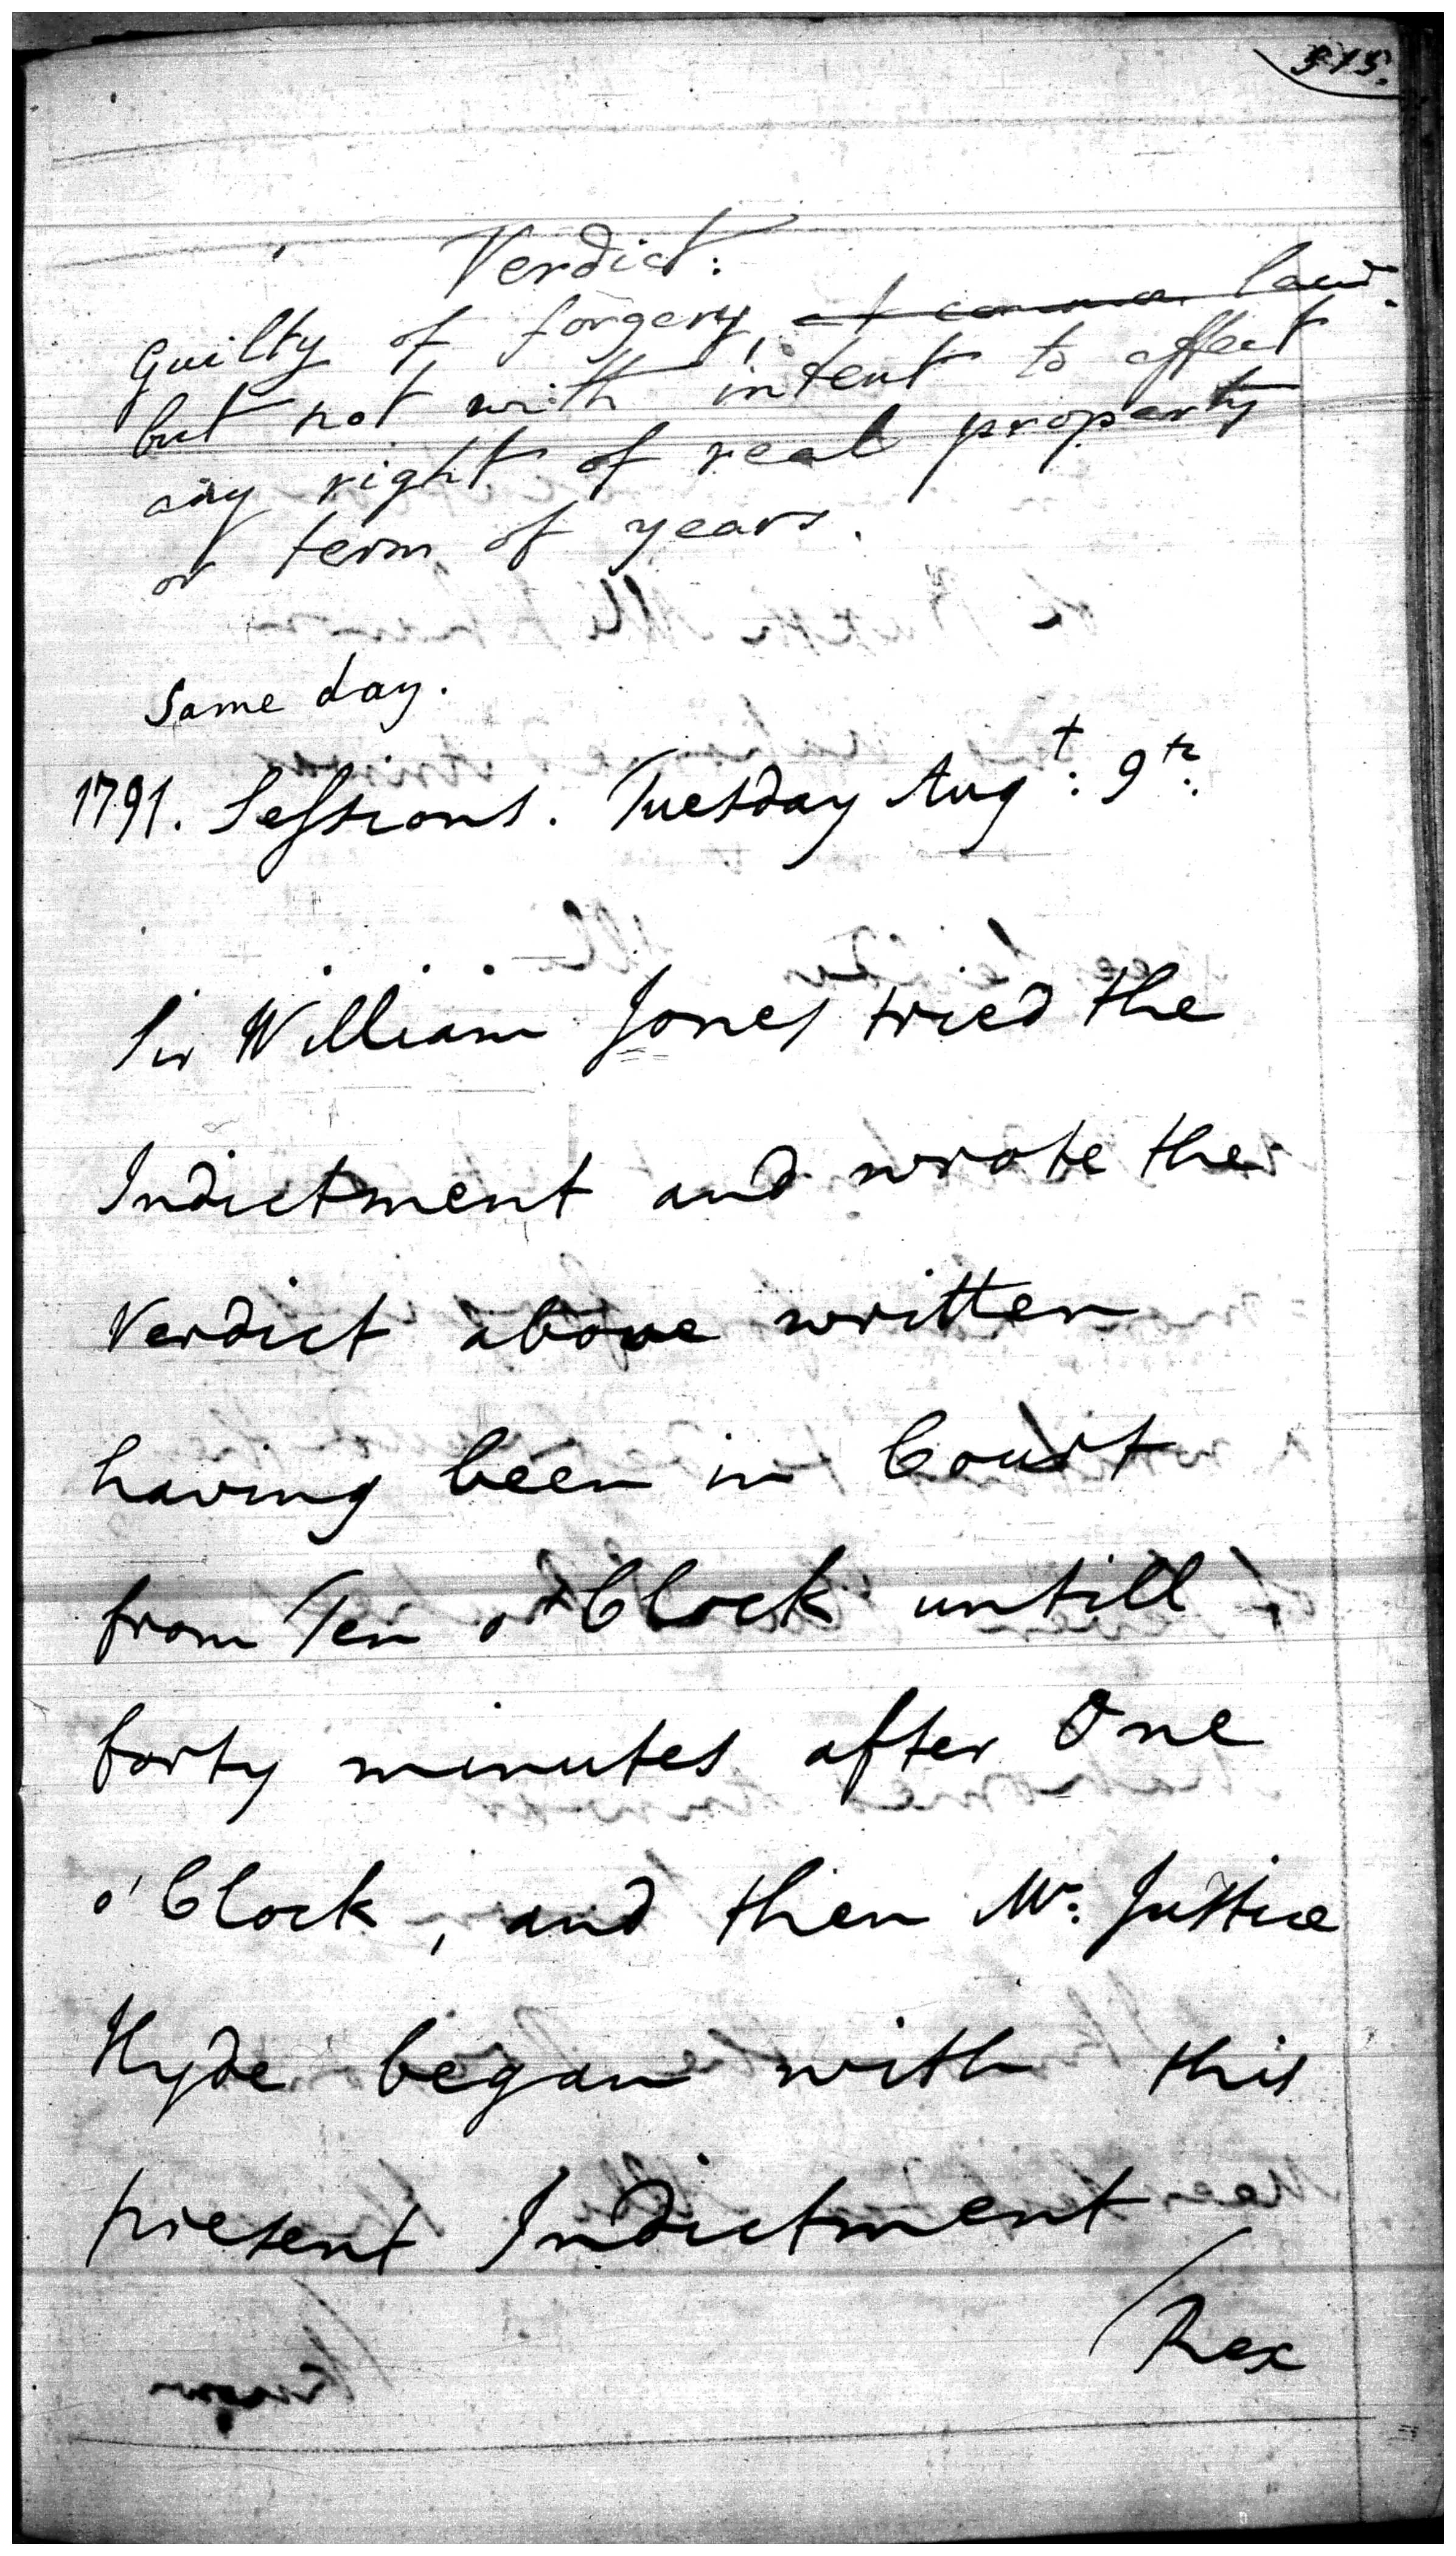 515.
Verdict:
Guilty of forgery, at common law.
but not with intent to affect
any right of real property
or term of years.
Same day.
1791. Sessions. Tuesday Augt: 9th.
Sir William Jones tried the
Indictment and wrote the
Verdict above written
having been in Court
from Ten o'Clock untill
forty minutes after One
o'Clock, and then Mr. Justice
Hyde began with this
present Indictment
Rex